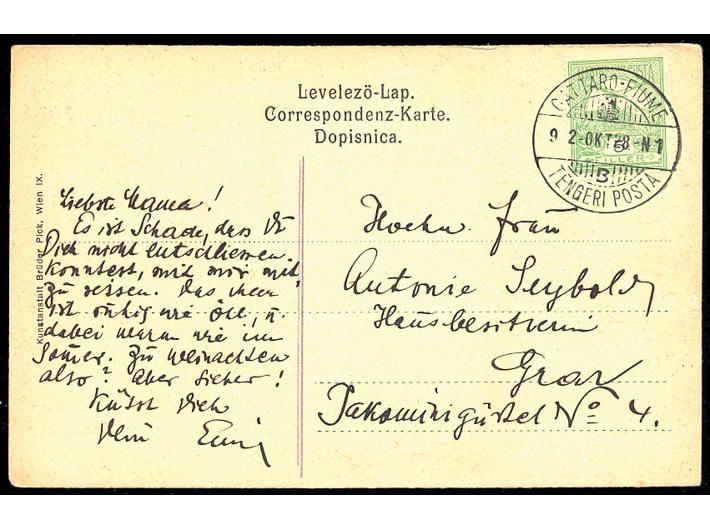 Levelezö-Lap.
Correspondenz-Karte.
Dopisnica.
CATTARO-FIUME
9 2-OKT 28.-N 1
B
TENGERI POSTA
FILLER
Kunstanstalt Brüder Pick, Wien IX.
Liebste Mama!
Es ist Schade, dass Du
Dich nicht entschliessen
konntest, mit mir mit
zu reisen. Das Meer
ist ruhig wie Öl, u.
dabei warm wie im
Somer. Zu Weinachten
also? Aber sicher!
Küsst Dich
Dein
Hochn. Frau
Antonie Seybold
Hausbesitzerin
Graz
Jakominigürtel No 4.